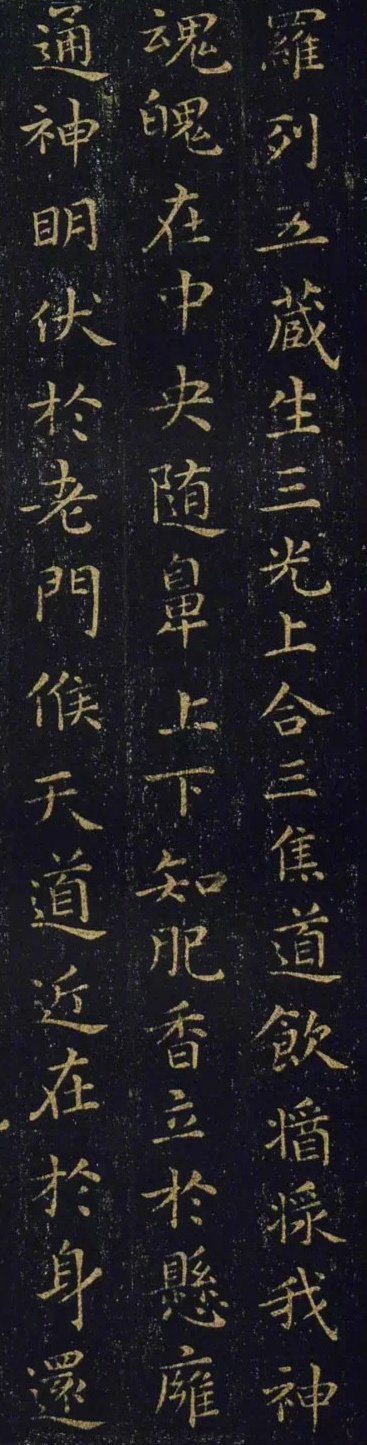 羅列五藏生三光上合三焦道飲醬漿我神
魂魄在中央随鼻上下知肥香立於懸廱
通神明伏於老門候天道近在於身還